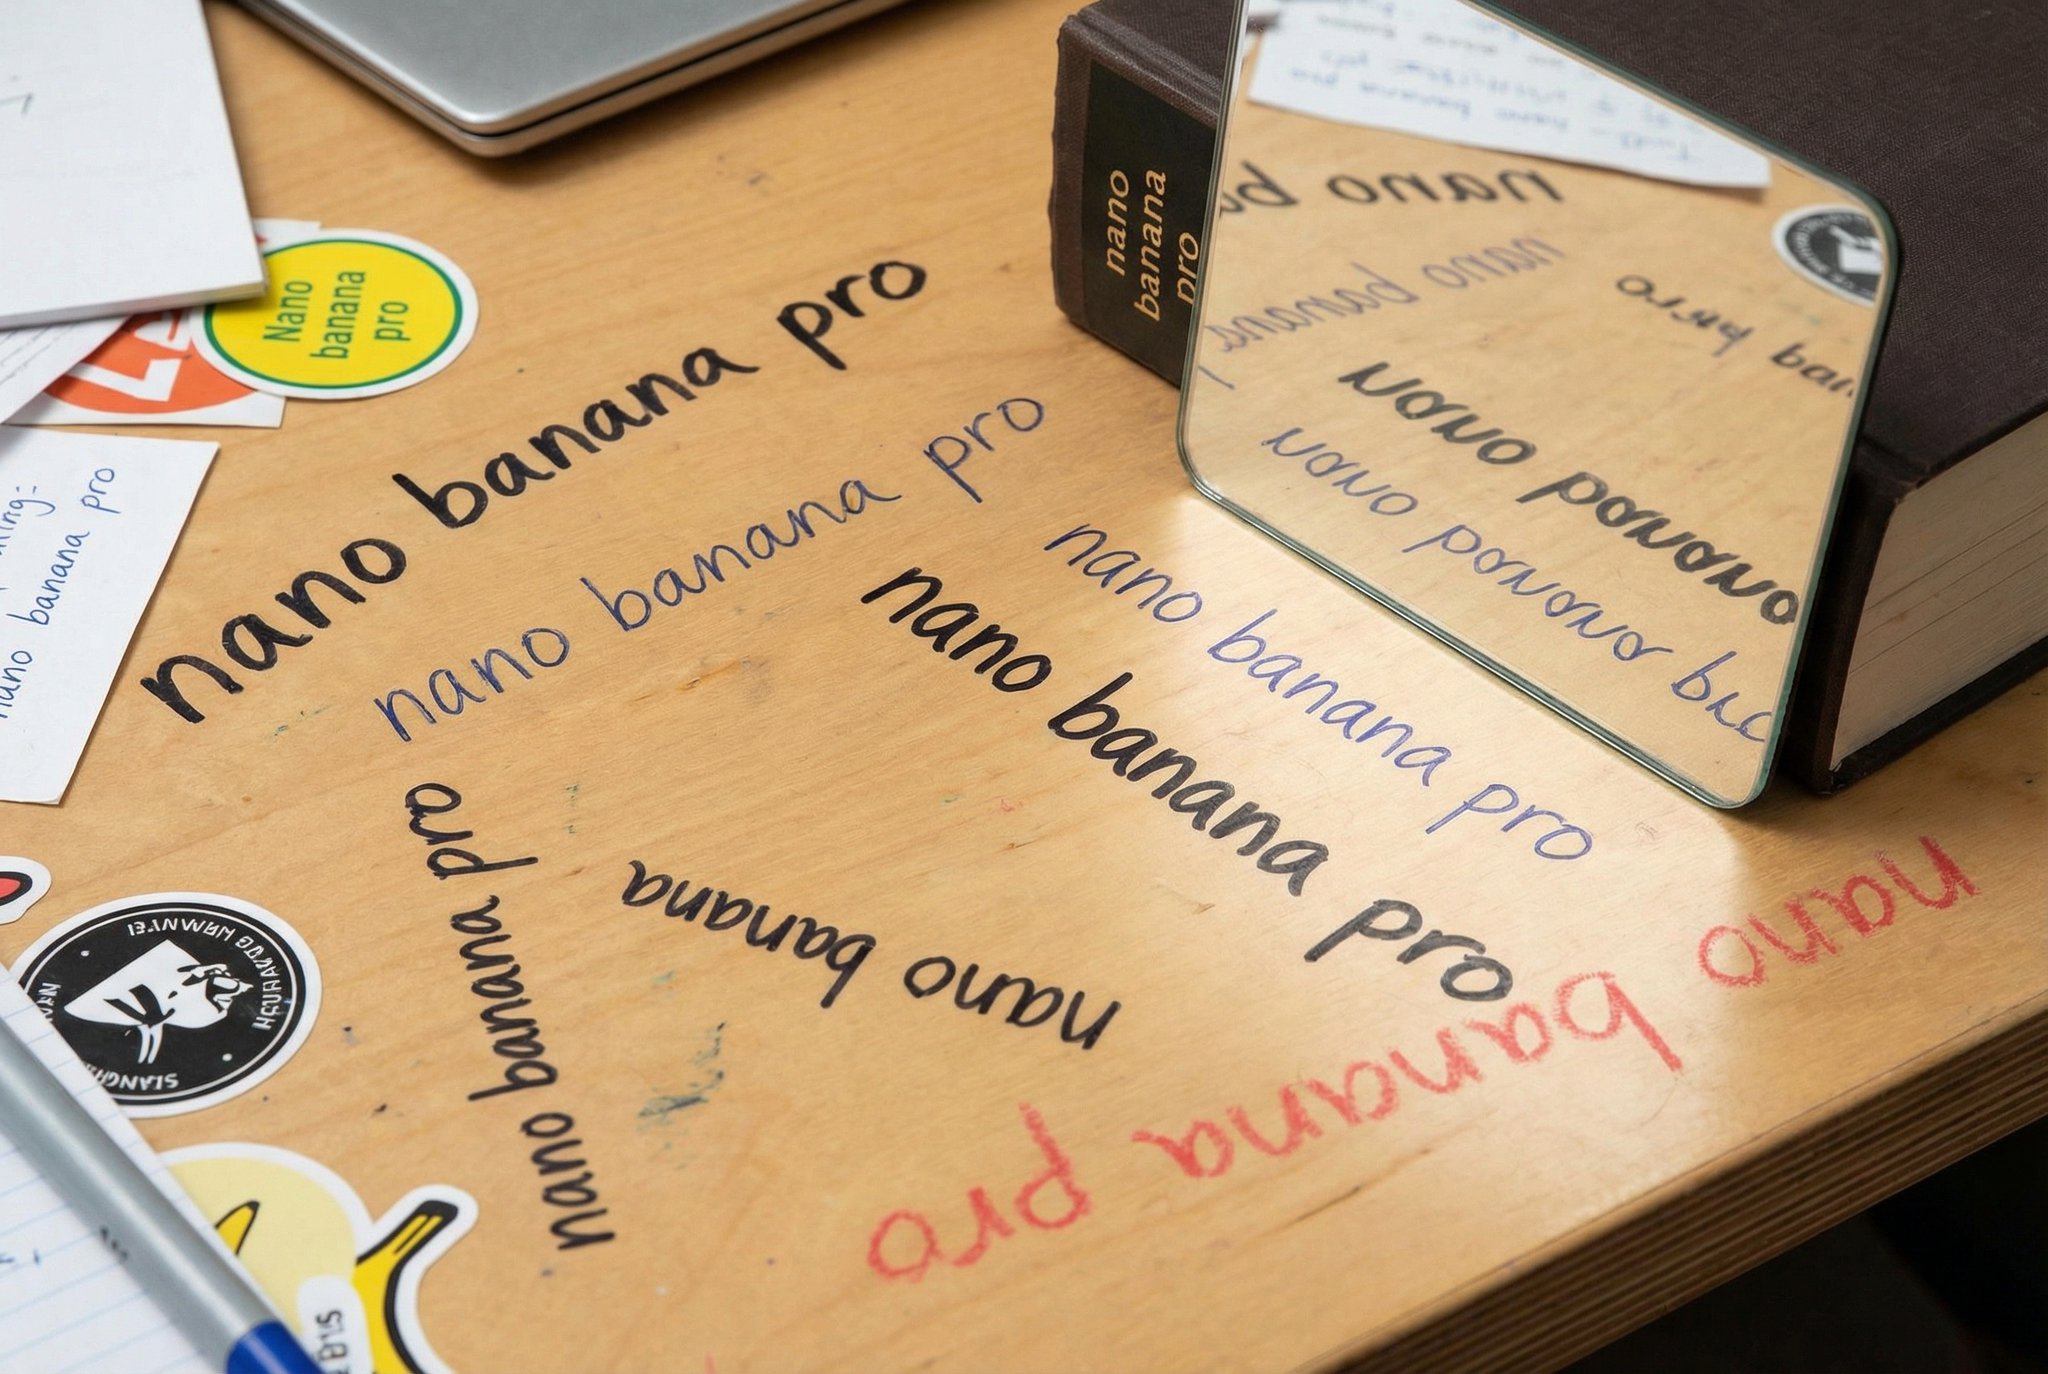 Nano
banana
pro
nano
banana
pro
nano banana pro
nano banana pro
nano banana pro
nano banana pro
nano banana pro
nano banana pro
nano banana
nano banana pro
nano ba
nano banana
nano banana
nano banana
nano banana pro